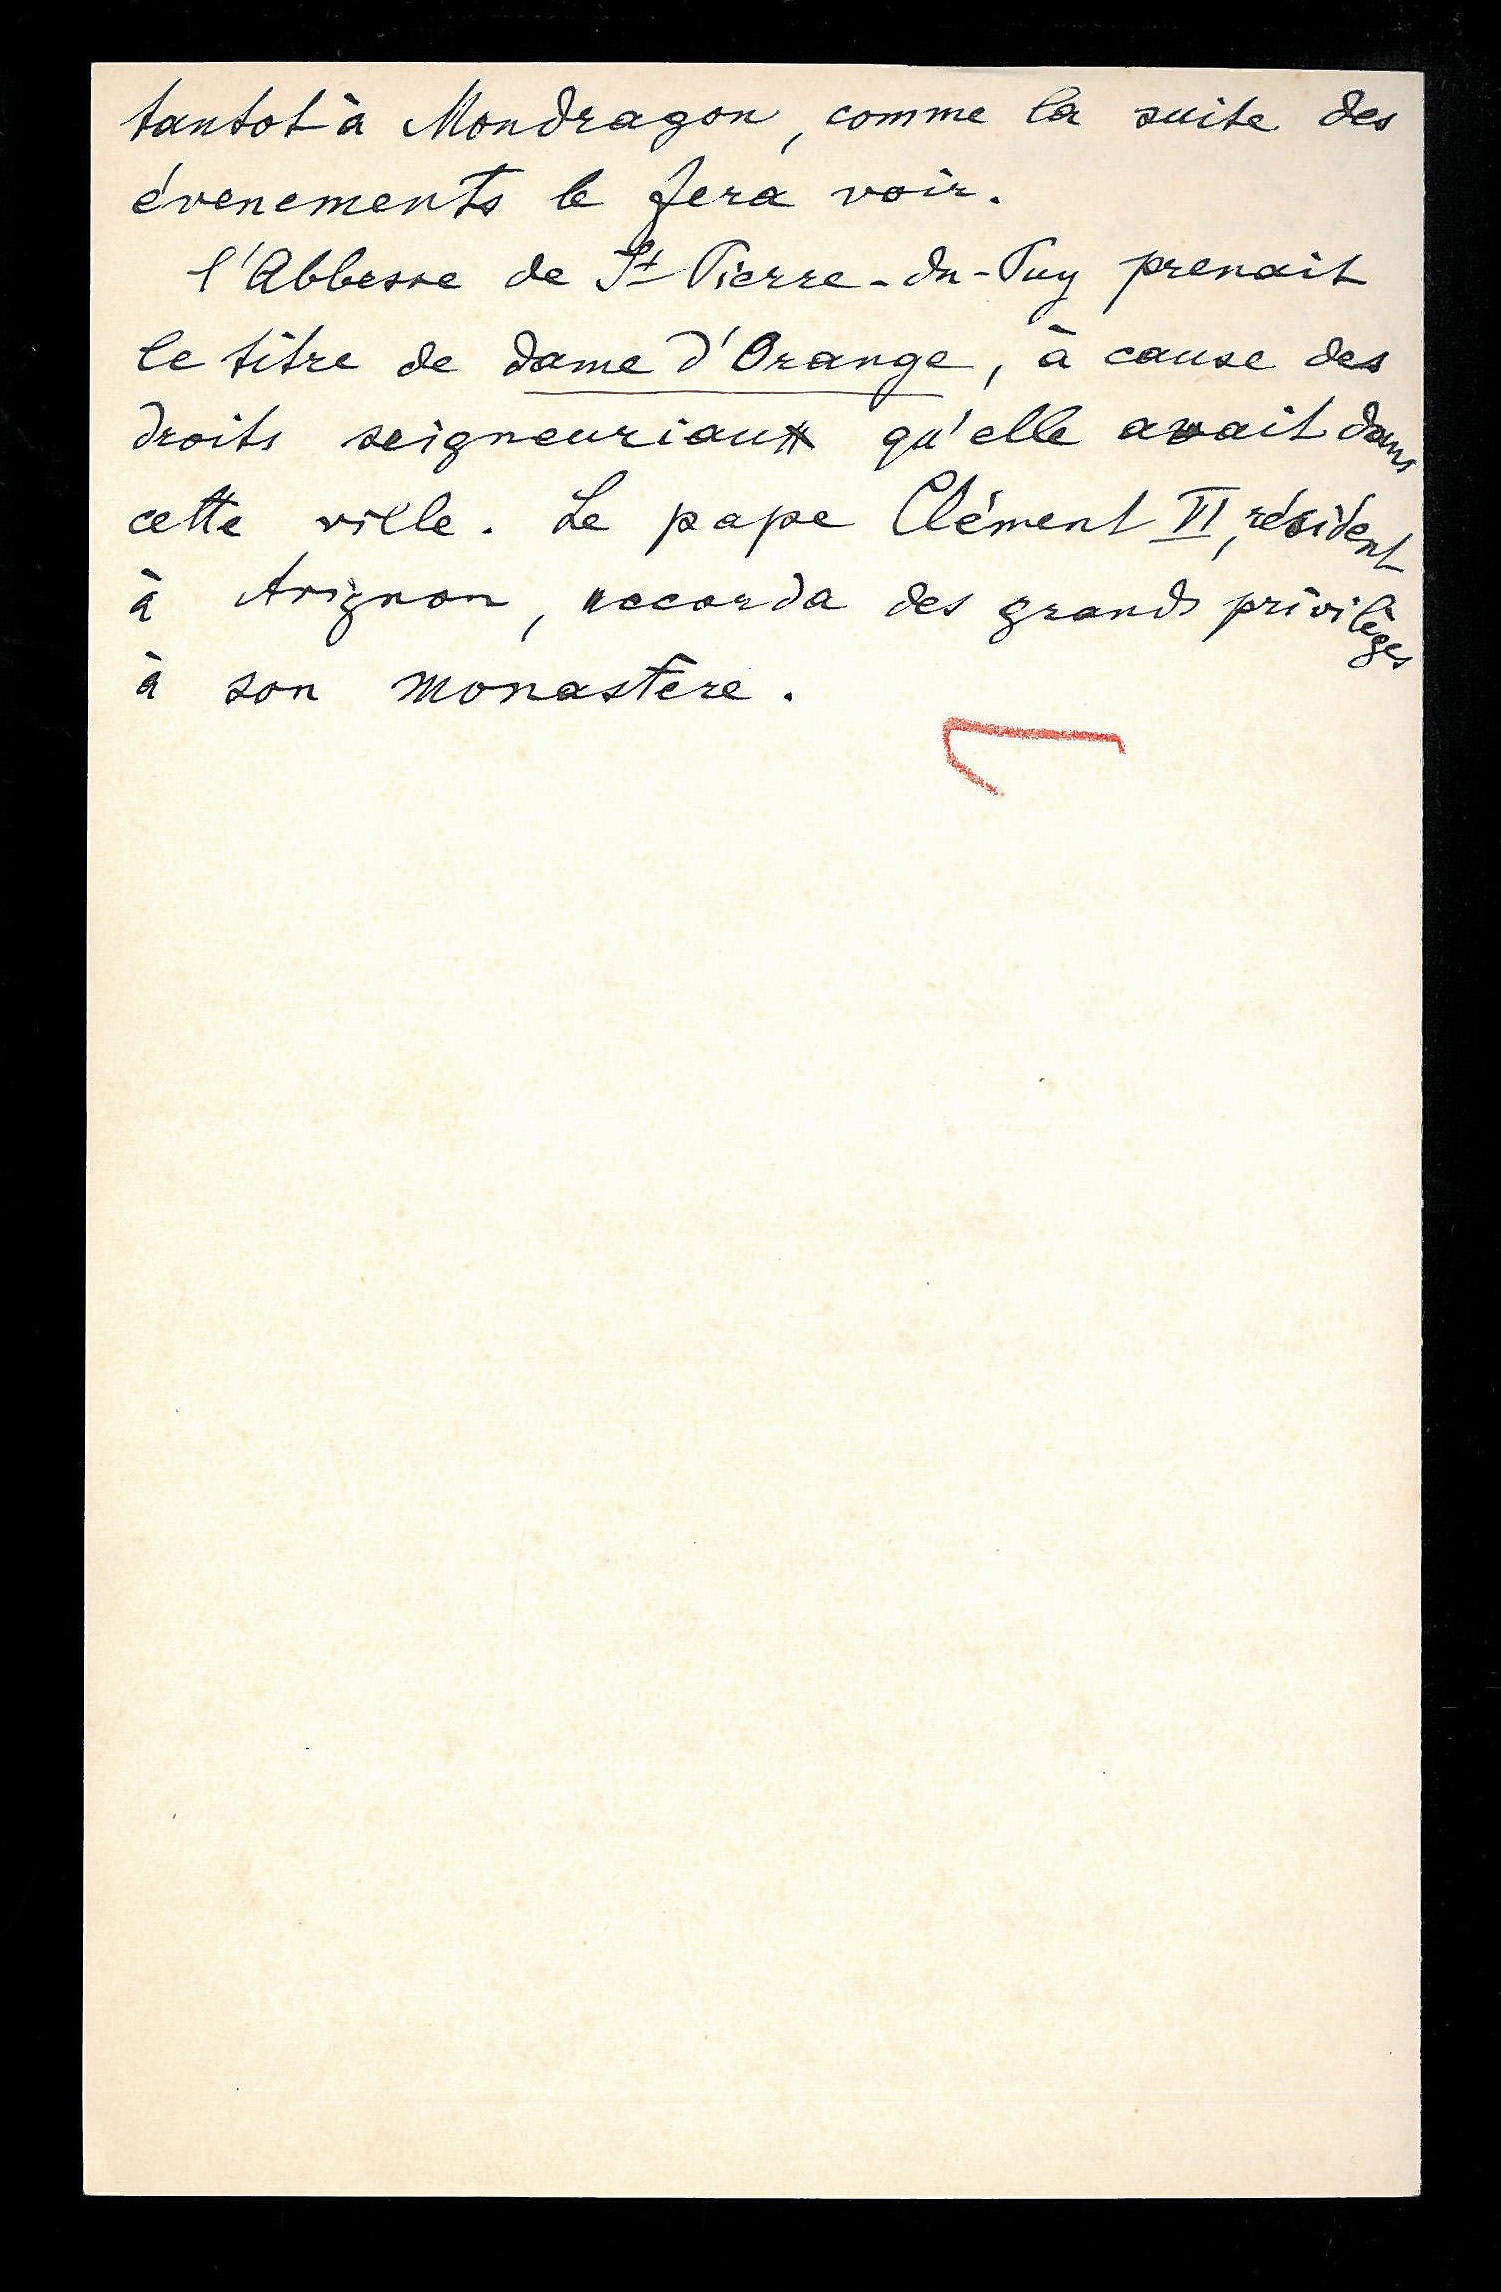 tantot à Mondragon, comme la suite des
évenements le fera voir.
l'Abbesse de St Pierre-du-Puy prenait
le titre de dame d'Orange, à cause des
droits seigneuriaux qu'elle avait dans
cette ville. Le pape Clément VI, résident
à Avignon, accorda des grands privilèges
à son monastère.